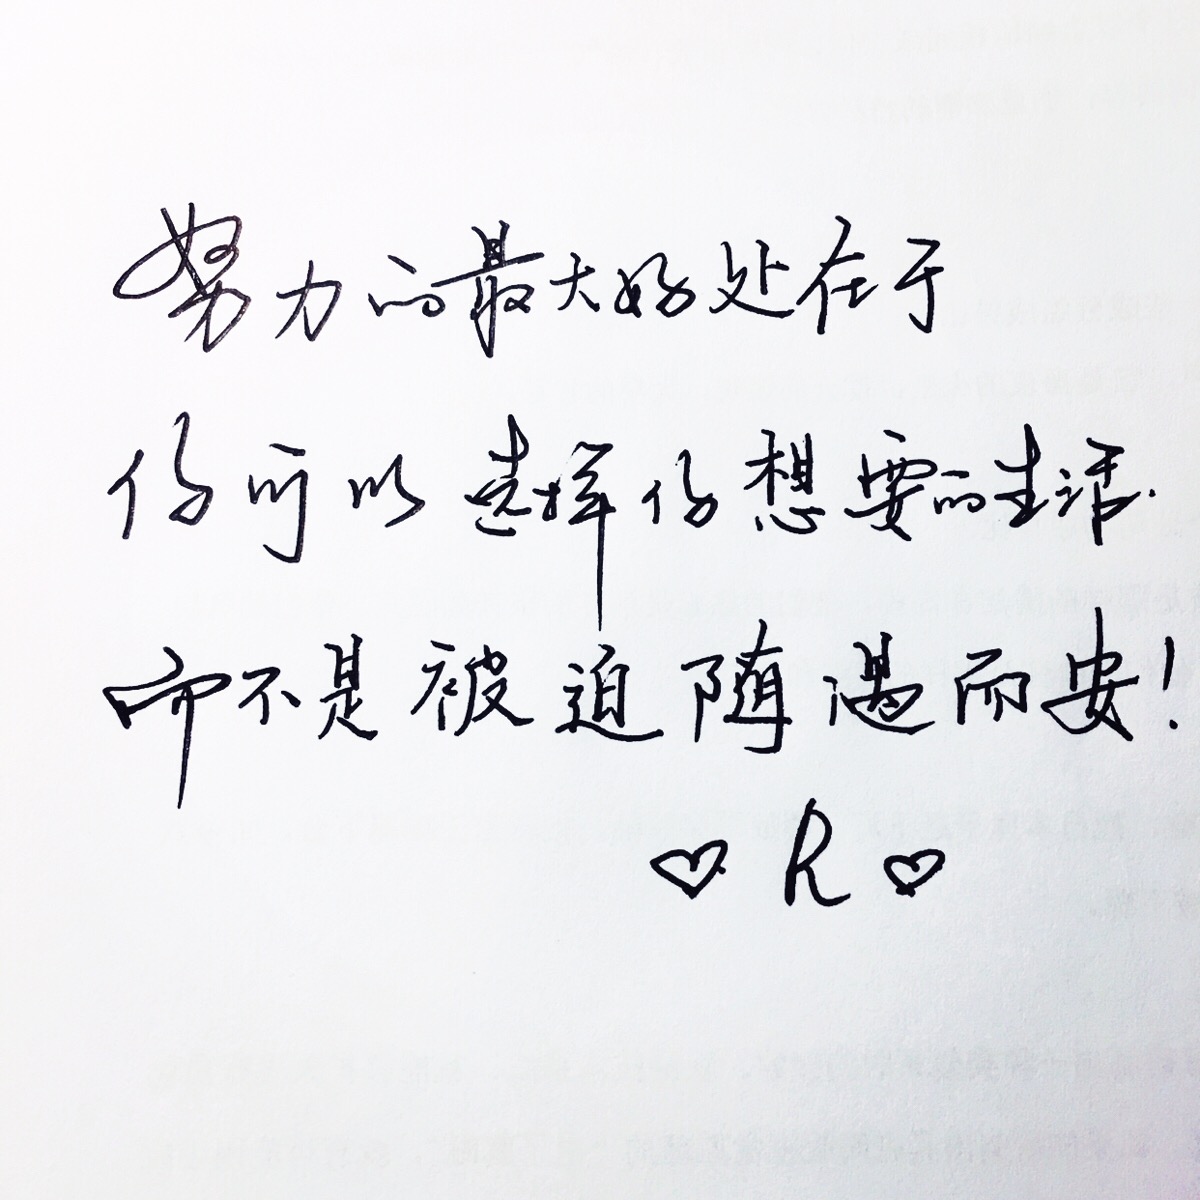 努力的最大好处在于
你可以选择你想要的生活.
而不是被迫随遇而安!
♡ R ♡